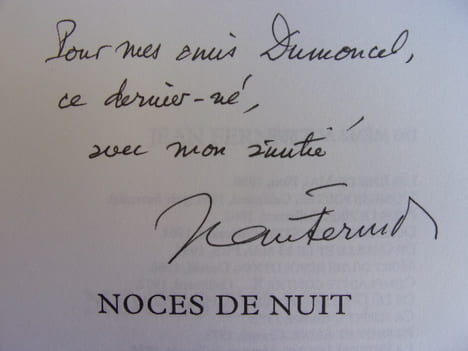 Pour mes amis Dumoncel,
ce dernier-né,
avec mon amitié
Jean Ferniot
NOCES DE NUIT